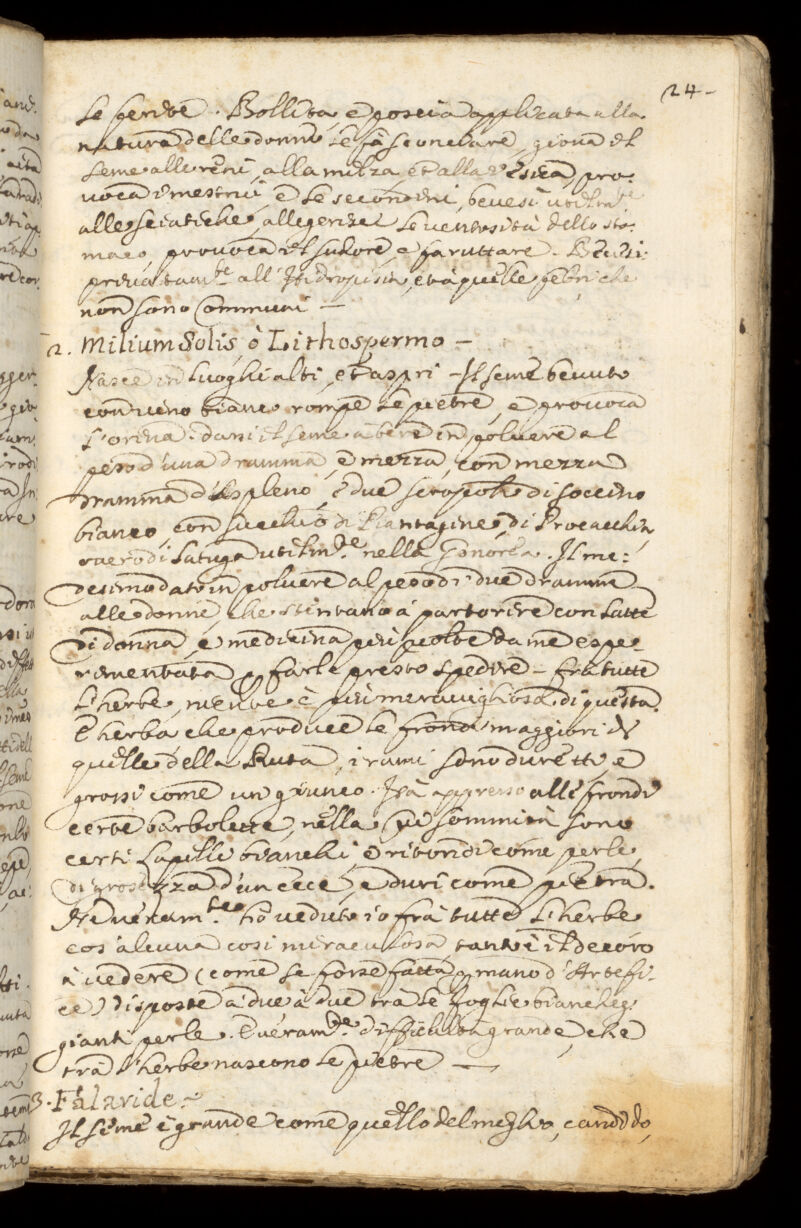 24.
le ferite. Bollita, e poscia applicata alla
natura delle donne le fà sconciare, giova il
seme alle reni, alla milza, et alla vesica, pro-
voca i mestrui, e le secondine, bevesi utilm.te
alle sciatiche, allegerisce le ventosità dello sto-
maco, provoca il sudore, e fa ruttare. Bevesi
privatam.te all'Hidropisia, et à quelle febri che
non sono Communi —
2. Milium Solis, ò Lithospermo —
Nasce in luoghi alti, et aspri — Il seme bevuto
con vino bianco rompe le pietre, e provoca
l'orina. dassi il seme a bere in polvere al
peso d'una dramma, e mezza, con mezza
dramma d'Aspleno, e due scropoli di soccino
bianco, con succhio di Piantagine, di Procacchia,
overo di Latuga utilm.te nella Gonorea. Il me:
desimo dato in polvere al peso di due dramme
alle donne, che stentano à partorire con latte
di donna, e medicina più volte da me espe-
rimentata p farle presto spedire — fra tutte
l'herbe, niente è più meravigliosa di questa.
È herba che produce le frondi maggiori di
quelle della Ruta, i rami sono duretti, e
grossi come un giunco. Hà appresso alle frondi
certe barbolette, nella cui sommità sono
certi lapilli bianchi, e ritondi come perle,
di grossezza d'un cece, e duri come pietra.
Ne veram.te hò veduto io frà tutte l'herbe
cos'alcuna così miraculosa, tant'è il decoro
à vedere (come se forse fatta p mano d'Artefi-
ce) disposte à due à due trà le foglie biancheg-
gianti perle. È veram.te difficultà grande, che
trà l'herbe nascono le pietre —
3. Falaride ~
Il seme è grande come quello del meglio, candido,